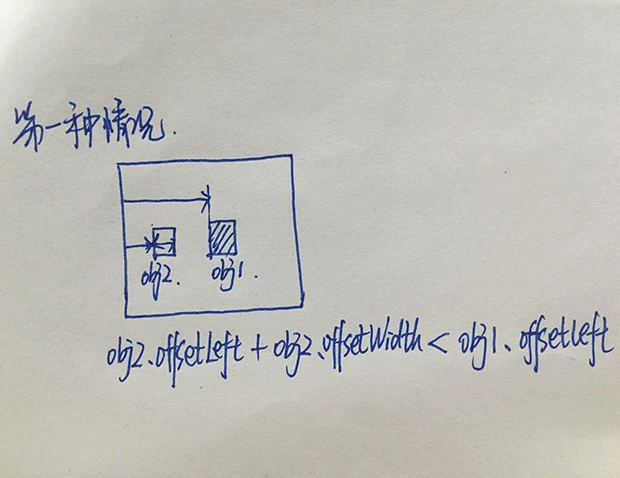 第一种情况.
obj2. obj1.
obj2.offsetLeft + obj2.offsetWidth < obj1.offsetLeft